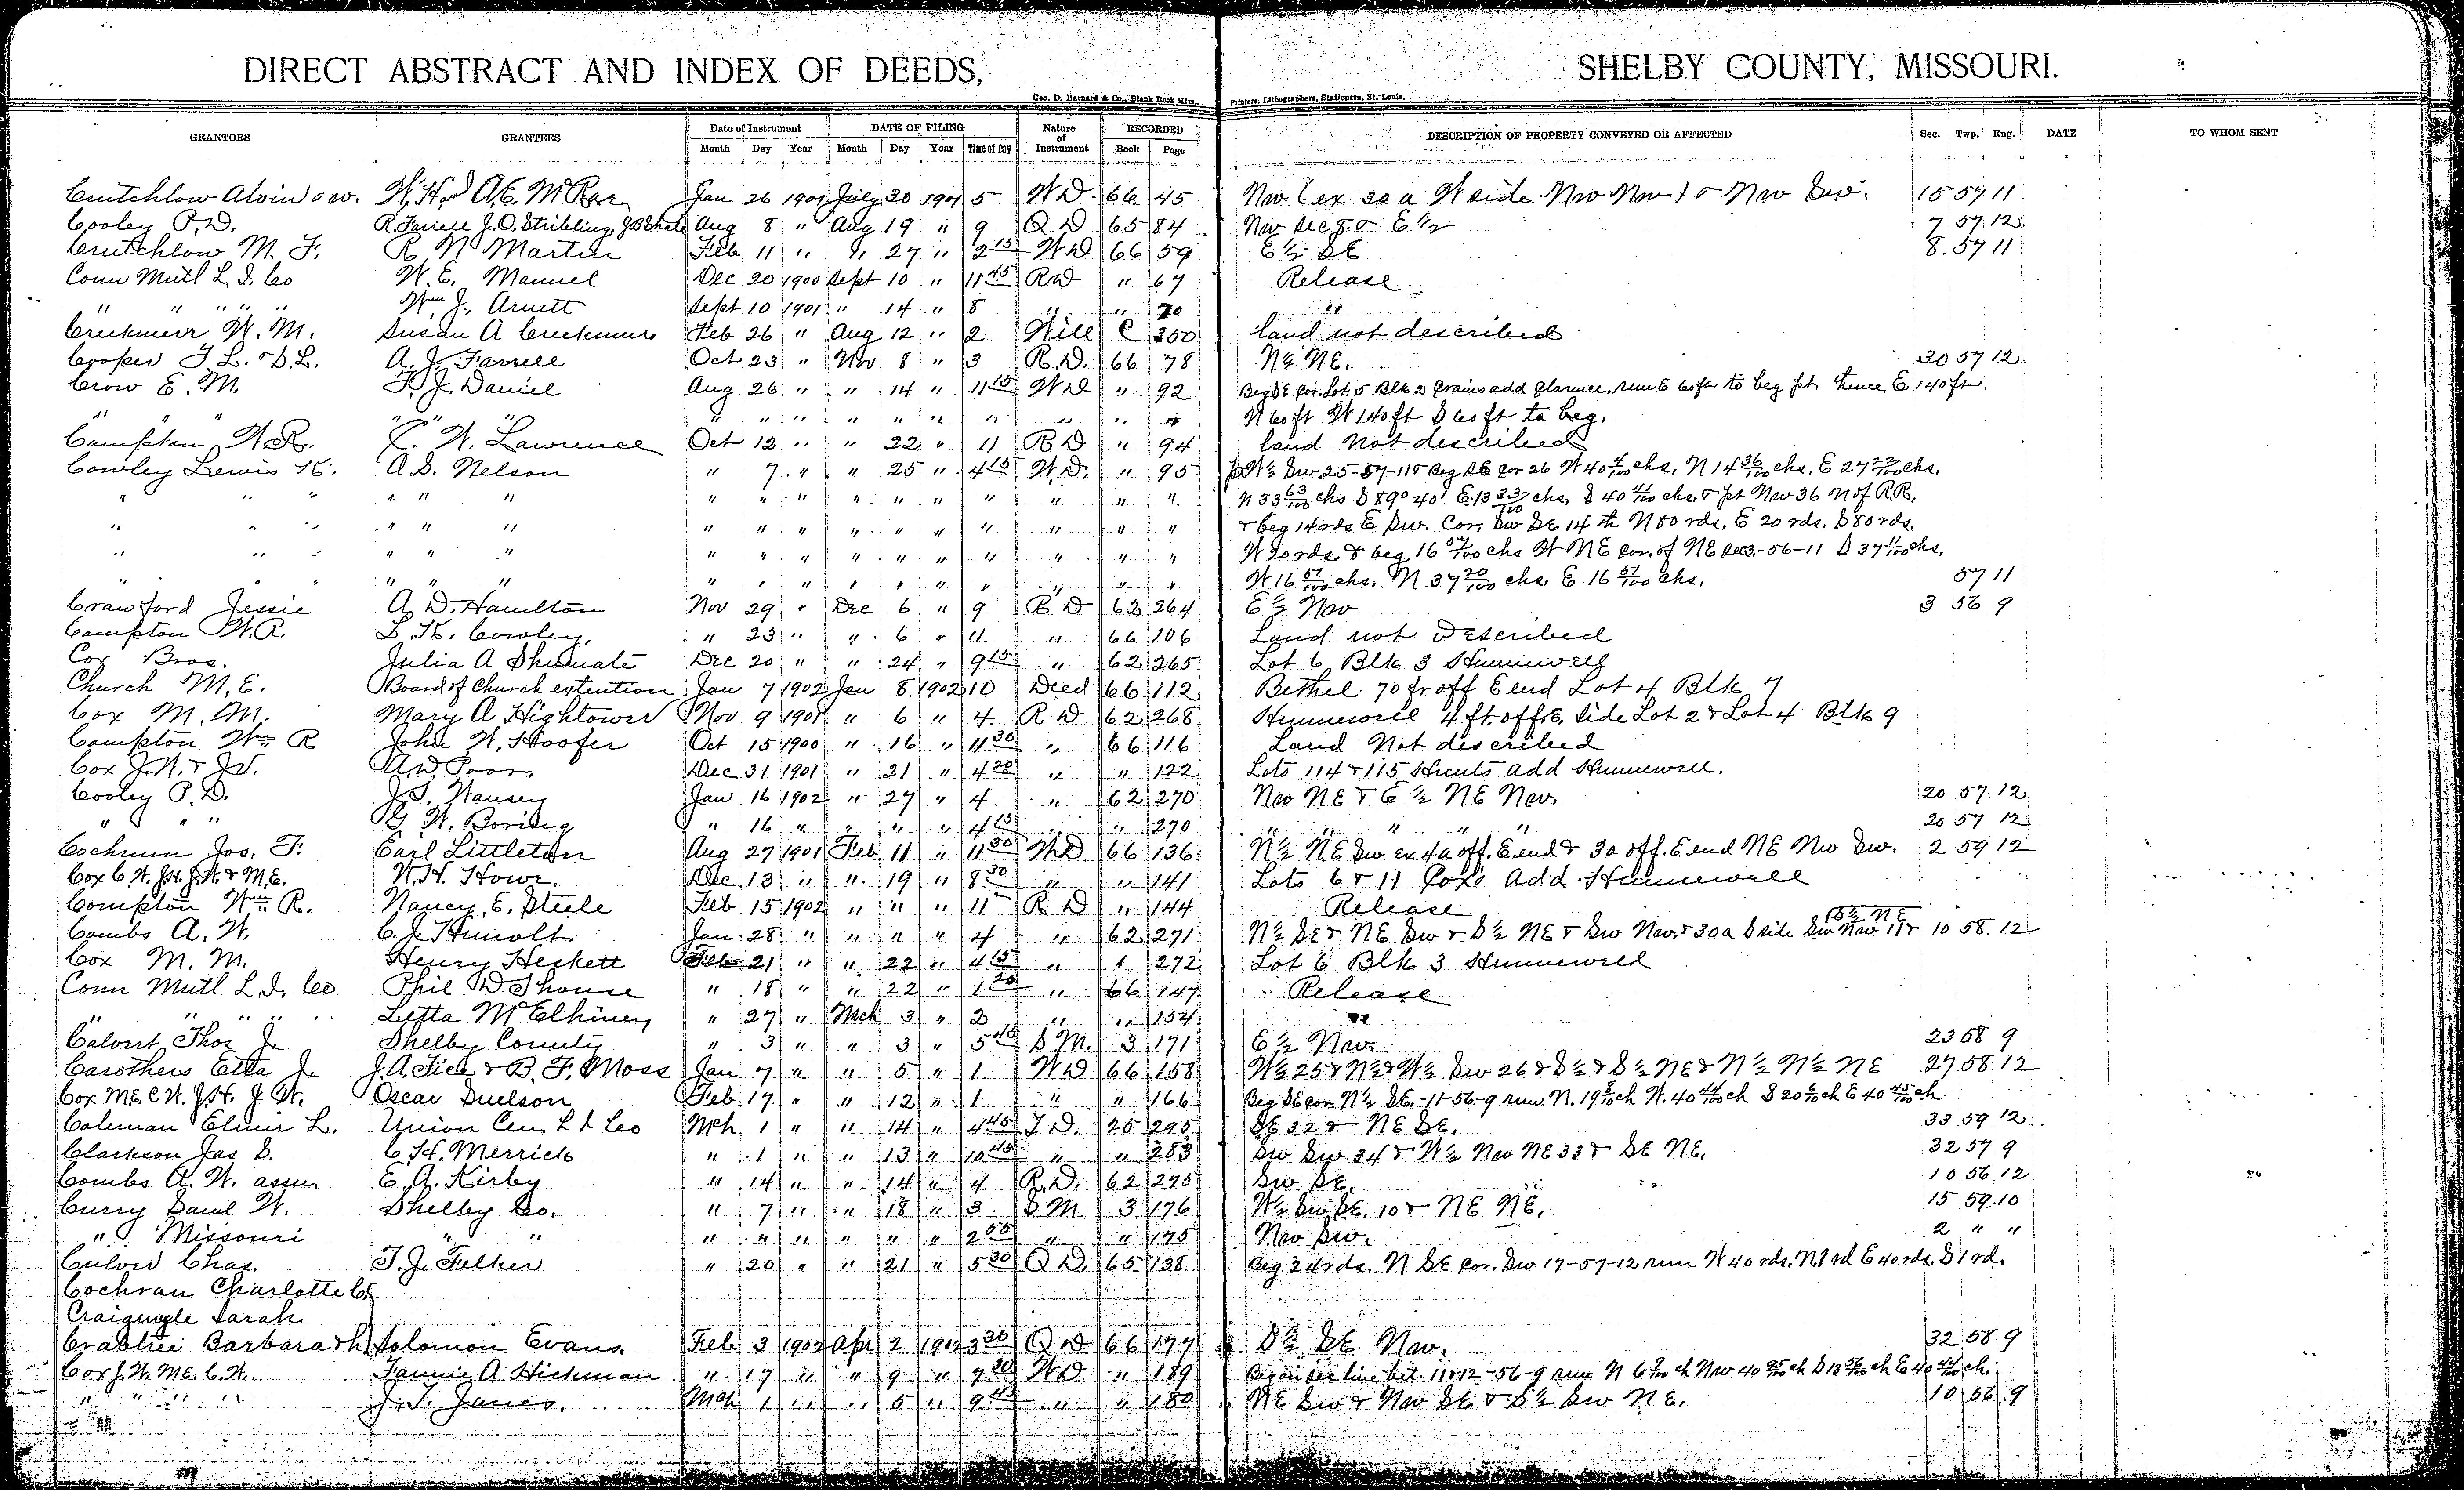 DIRECT ABSTRACT AND INDEX OF DEEDS, SHELBY COUNTY, MISSOURI.
Geo. D. Barnard & Co., Blank Book Mfrs., Printers, Lithographers, Stationers, St. Louis.
GRANTORS GRANTEES Date of Instrument DATE OF FILING Nature of Instrument RECORDED DESCRIPTION OF PROPERTY CONVEYED OR AFFECTED Sec. Twp. Rng. DATE TO WHOM SENT
Month Day Year Month Day Year Time of Day Book Page
Crutchlow Alvin & w. W. H. & A. E. McRae Jan 26 1901 July 30 1901 5 WD 66 45 Nw (ex 30 a W side Nw Nw) & Nw Sw. 15 57 11
Cooley P. D. R. Farrell J. O. Stribling, J B Shale Aug 8 " Aug 19 " 9 Q D 65 84 Nw Sec 8 & E ½ 7 57 12
Crutchlow M. F. R N Martin Feb 11 " " 27 " 2 15 WD 66 59 E ½ SE 8 57 11
Conn Mutl L. I. Co W. E. Manuel Dec 20 1900 Sept 10 " 11 45 RD " 67 Release
" " " " " Wm J. Arnett Sept 10 1901 " 14 " 8 " " 70 "
Creekmur W. M. Susan A Creekmur Feb 26 " Aug 12 " 2 Will C 350 land not described
Cooper T. L. & S. L. A. J. Farrell Oct 23 " Nov 8 " 3 R. D. 66 78 N ½ NE. 30 57 12
Crow E. M. F. J. Daniel Aug 26 " " 14 " 11 15 WD " 92 Beg SE Cor. Lot 5 Blk 2 Crains add Clarence, run E 60 ft to beg pt. thence E 140 ft
" " " " " " " " " " " " " " " N 60 ft W 140 ft S 60 ft to beg.
Compton W. R. C. W. Lawrence Oct 12 " " 22 " 11 R D " 94 land not described
Cowley Lewis K. A. S. Nelson " 7 " " 25 " 4 15 W. D. " 95 pt W ½ Sw 25-57-11 & Beg SE cor 26 W 40 4/100 chs. N 14 36/100 chs. E 27 22/100 chs.
" " " " " " " " " " " " " " " " N 33 63/100 chs S 89° 40' E. 13 33/100 chs. S 40 41/100 chs. & pt Nw 36 N of R.R.
" " " " " " " " " " " " " " " " & beg 14 rds E Sw. Cor. Sw SE 14 th N 80 rds. E 20 rds. S 80 rds.
" " " " " " " " " " " " " " " " W 20 rds & beg 16 57/100 chs W NE cor. of NE Sec 3-56-11 S 37 11/100 chs.
" " " " " " " " " " " " " " " W 16 57/100 chs. N 37 20/100 chs. E 16 57/100 chs. 57 11
Crawford Jessie A. D. Hamilton Nov 29 " Dec 6 " 9 R D 62 264 E ½ Nw 3 56 9
Compton W. R. L. K. Cowley. " 23 " " 6 " 11 " 66 106 Land not Described
Cox Bros. Julia A Shumate Dec 20 " " 24 " 9 15 " 62 265 Lot 6 Blk 3 Hunnewell
Church M. E. Board of Church extention Jan 7 1902 Jan 8 1902 10 Deed 66 112 Bethel 70 fr off E end Lot 4 Blk 7
Cox M. M. Mary A Hightower Nov 9 1901 " 6 " 4 R. D 62 268 Hunnewell 4 ft. off E. Side Lot 2 & Lot 4 Blk 9
Compton Wm R John W. Hoofer Oct 15 1900 " 16 " 11 30 " 66 116 Land Not described
Cox J. W. & J. V. A. W. Poor. Dec 31 1901 " 21 " 4 20 " " 122 Lots 114 & 115 Hunts add Hunnewell.
Cooley P. D. J. S. Hausey Jan 16 1902 " 27 " 4 " 62 270 Nw NE & E ½ NE Nw. 20 57 12
" " " G. W. Boring " 16 " " " " 4 15 " " 270 " " " " " 20 57 12
Cochrum Jos. F. Earl Littleton Aug 27 1901 Feb 11 " 11 30 WD 66 136 N ½ NE Sw ex 4a off. E end & 3a off. E end NE Nw Sw. 2 59 12
Cox C. W. J. H. J. W. & M. E. W. H. Howe. Dec 13 " " 19 " 8 30 " " 141 Lots 6 & 11 Cox's Add Hunnewell
Compton Wm R. Nancy E. Steele Feb 15 1902 " " " 11 R D " 144 Release
Combs A. W. C. J. Humolt Jan 28 " " " " 4 " 62 271 N ½ SE & NE Sw & S ½ NE & Sw Nw. & 30a S side S ½ NE Sw Nw 11 & 10 58 12
Cox M. M. Henry Heskett Feb 21 " " 22 " 4 15 " " 272 Lot 6 Blk 3 Hunnewell
Conn Mutl L. I. Co Phil D. Shouse " 18 " " 22 " 1 20 " 66 147 Release
" " " " " Letta McElhiney " 27 " Mch 3 " 2 " " 154 "
Calvert Thos J. Shelby County " 3 " " 3 " 5 45 S M. 3 171 E ½ Nw. 23 58 9
Carothers Etta J. J. A Tice & B. F. Moss Jan 7 " " 5 " 1 WD 66 158 W ½ 25 & N ½ & W ½ Sw 26 & S ½ & S ½ NE & N ½ N ½ NE 27 58 12
Cox M E. C W. J. H. J. W. Oscar Suelson Feb 17 " " 12 " 1 " " 166 Beg SE cor N ½ SE. -11-56-9 run N. 19 8/100 ch W. 40 44/100 ch S 20 6/100 ch E 40 45/100 ch
Coleman Elmir L. Union Cen. L I Co Mch 1 " " 14 " 4 45 T D. 25 295 SE 32 & NE SE. 33 59 12
Clarkson Jas S. C. H. Merrick " 1 " " 13 " 10 45 " " 283 Sw Sw 34 & W ½ Nw NE 33 & SE NE. 32 57 9
Combs A. W. assur. E. A. Kirby " 14 " " 14 " 4 R. D. 62 275 Sw SE. 10 56 12
Curry Saml W. Shelby Co. " 7 " " 18 " 3 S M 3 176 W ½ Sw SE. 10 & NE NE. 15 59 10
" Missouri " " " " " " " " 2 55 " " 175 Nw Sw. 2 " "
Culver Chas. T. J. Felker " 20 " " 21 " 5 30 Q D. 65 138 Beg 24 rds. N SE cor. Sw 17-57-12 run W 40 rds. N 1 rd E 40 rds. S 1 rd.
Cochran Charlotte C.
Craigmyle Sarah
Crabtree Barbara & h Solomon Evans. Feb 3 1902 Apr 2 1902 3 30 Q D 66 177 S ½ SE Nw. 32 58 9
Cox J. W. M E. C. W. Fannie A Hickman " 17 " " 9 " 7 30 WD " 189 Beg on Sec line bet. 11 & 12 -56-9 run N 6 ch Nw 40 25/100 ch S 13 26/100 ch E 40 44/100 ch.
" " " " J. T. Janes. Mch 1 " " 5 " 9 45 " " 180 NE Sw & Nw SE & S ½ Sw NE. 10 56 9